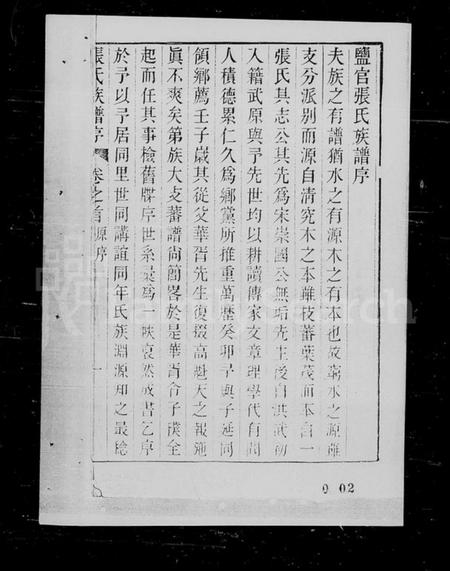 鹽官張氏族譜序
夫族之有譜猶水之有源木之有本也故窮水之源雖
支分派別而源自清究木之本雖枝蕃葉茂而本自一
張氏其志公其先為宋崇國公無垢先生後自洪武初
入籍武原與予先世均以耕讀傳家文章理學代有聞
人積德累仁久為鄉黨所推重萬歷癸卯予與子延同
領鄉薦壬子歲其從父華胥先生復掇高魁天之報施
眞不爽矣第族大支蕃譜尚簡畧於是華胥令子僕全
起而任其事檢舊牒序世系彙為一帙裒然成書乞序
於予以予居同里世同講誼同年氏族淵源知之最稔
張氏族譜序 卷之首 原序 一
0 02